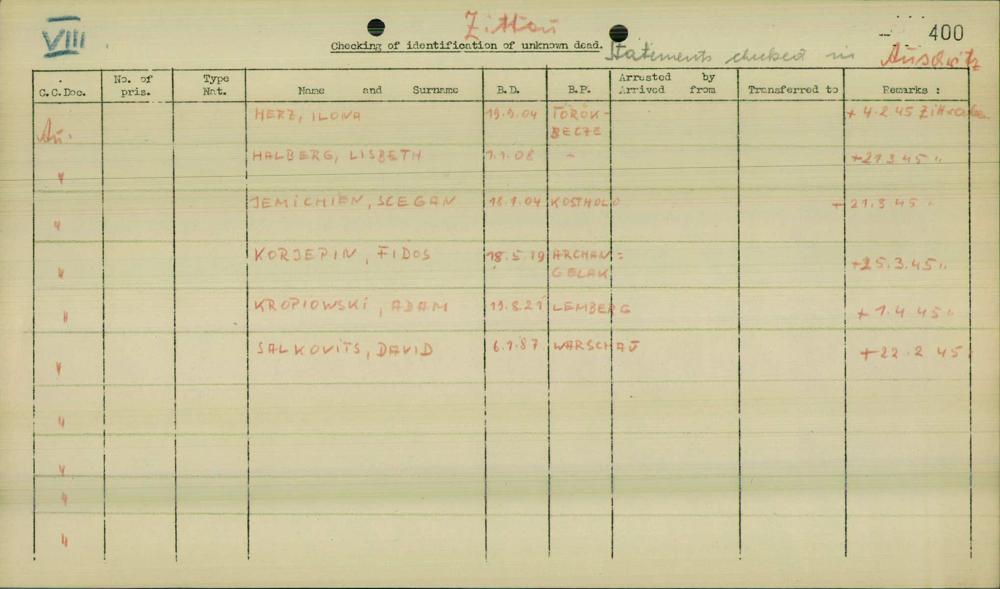 VIII
Zittau
400
Checking of identification of unknown dead. Statements checked in Auschwitz
C.C.Doc. No. of pris. Type Nat. Name and Surname B.D. B.P. Arrested by Arrived from Transferred to Remarks :
Au. HERZ, ILONA 19.9.04 TÖRÖK- + 4.2.45 Zittau
BECZE
" HALBERG, LISBETH 1.1.08 - +21 3 45 "
" JEMICHIEN, SCEGAN 18.1.04 KOSTHOLO + 21.3 45 "
" KORJEPIN, FIDOS 18.5.19 ARCHAN=
GELAK +25.3.45 "
" KROPIOWSKI, ADAM 19.8.21 LEMBERG + 1.4 45 "
" SALKOVITS, DAVID 6.1.87 WARSCHAU +22.2 45
"
"
"
"